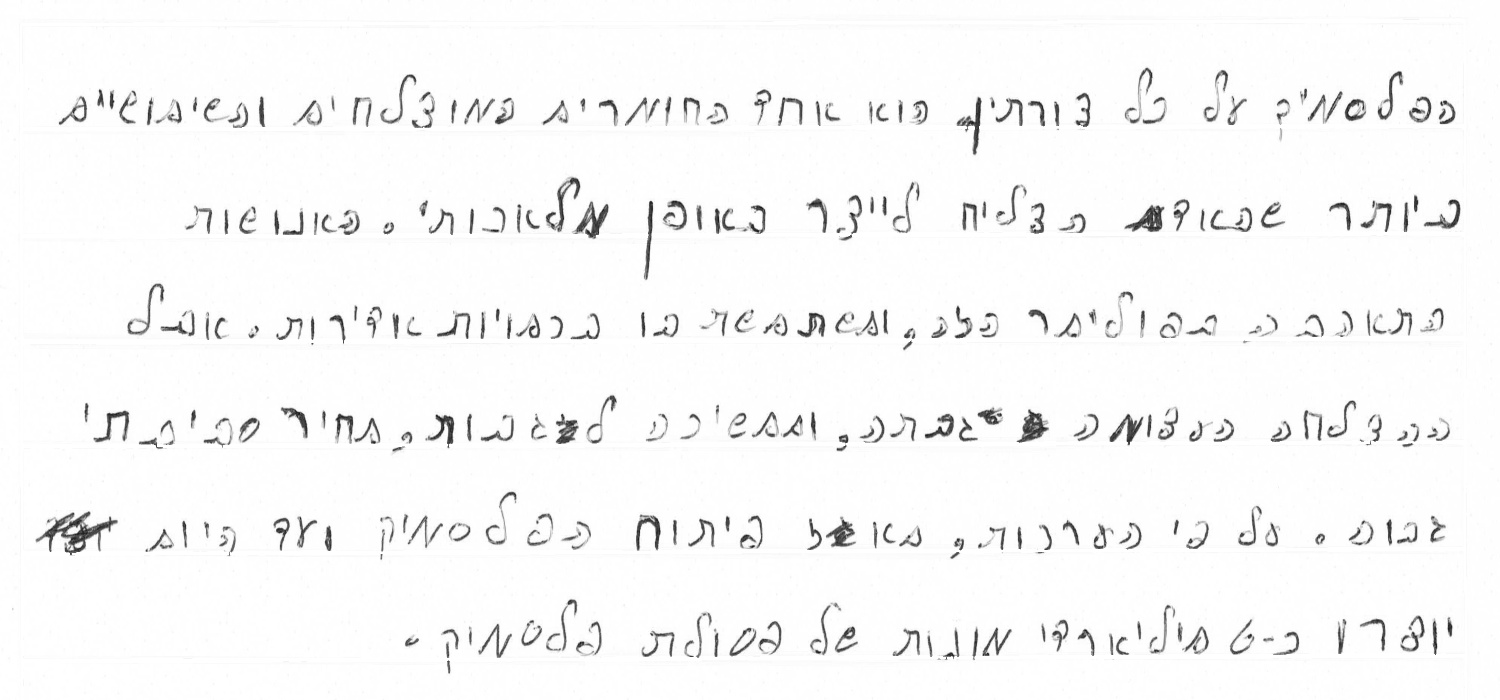 הפלסטיק על כל צורתיו, הוא אחד החומרים המוצלחים והשימושיים
ביותר שהאדם הצליח לייצר באופן מלאכותי. האנושות
התאהבה בפולימר הזה, ומשתמשת בו בכמויות אדירות. אבל
ההצלחה העצומה גבתה, וממשיכה לגבות, מחיר סביבתי
גבוה. על פי הערכות, מאז פיתוח הפלסטיק ועד היום
יוצרו כ-6 מיליארדי טונות של פסולת פלסטיק.